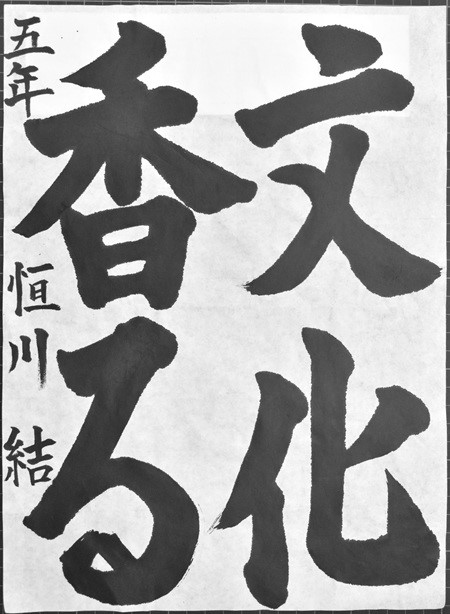 文化
香る
五年 恒川 結